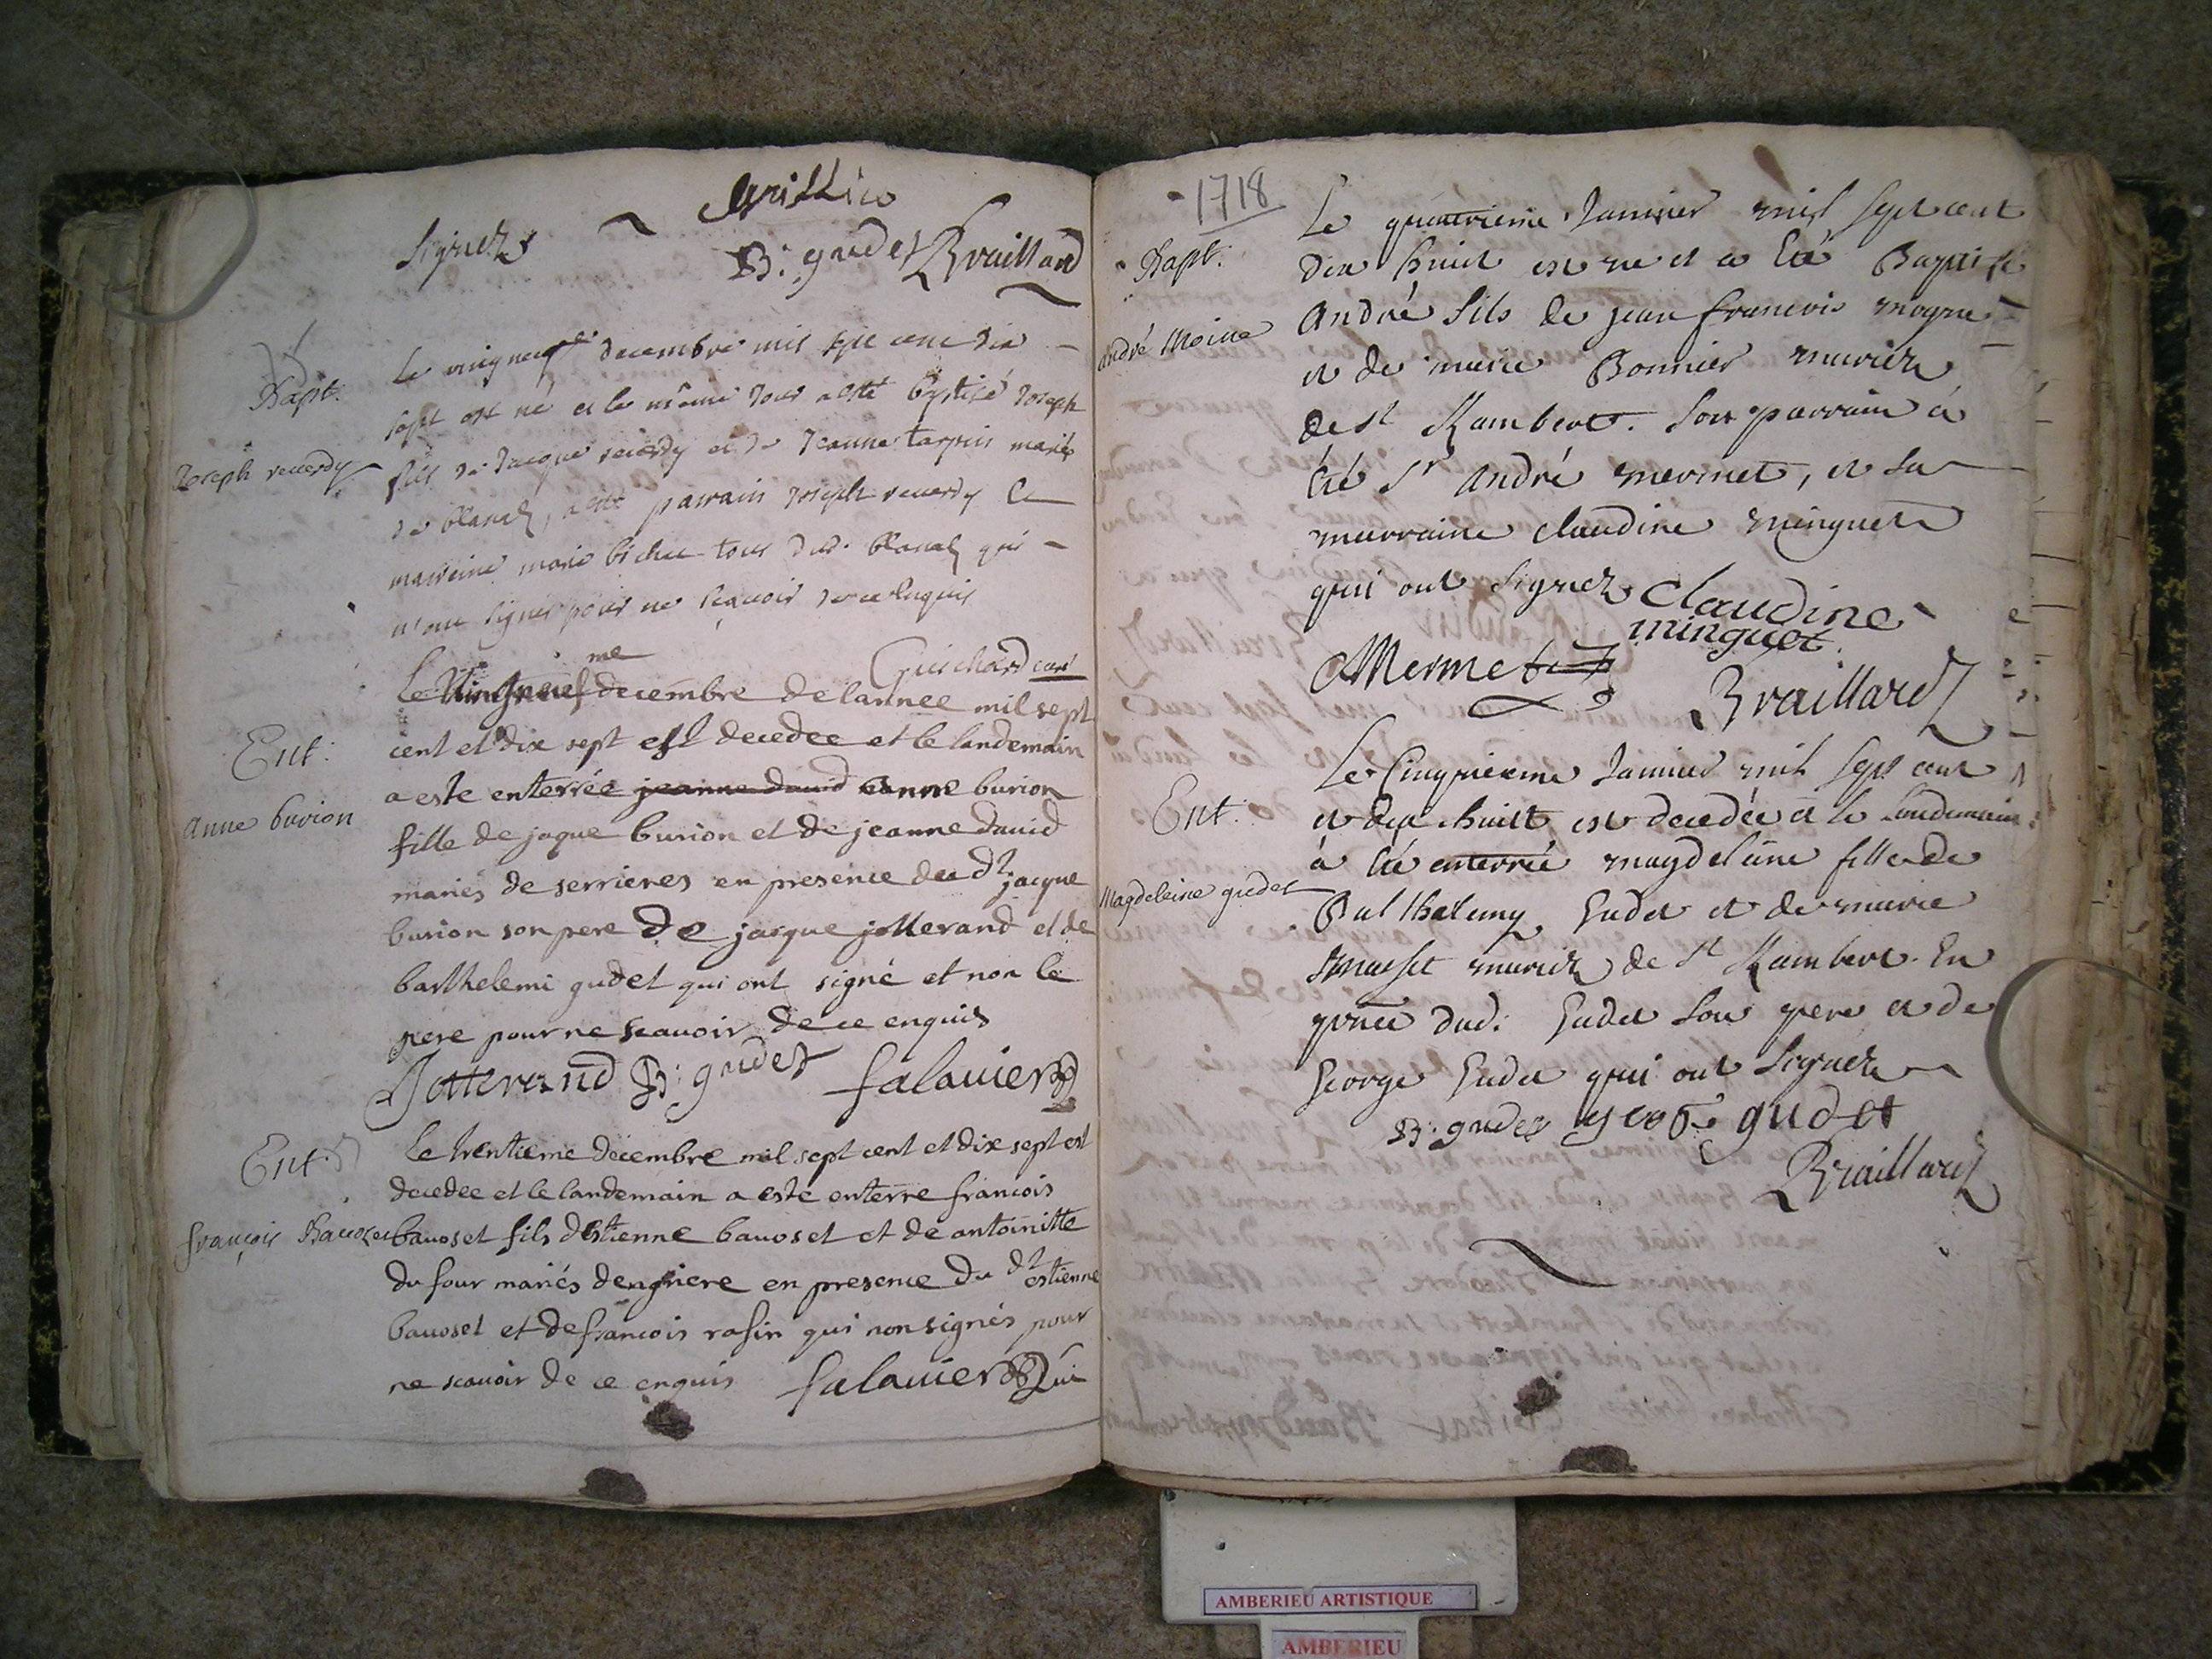 Grillio
signez B. gudet Braillard
Bapt.
Joseph reuerdy
Le vingneufe decembre mil sept cent dix
sept est né et le même jour a esté baptisé joseph
fils de Jacque reuerdy et de Jeanne tarpin mariés
de blanaz, a esté parrain joseph reuerdy et
marreine marie bichat tous dud. blanaz qui
n'ont signes pour ne sçauoir de ce enquis
Guichard curé
Ent.
anne burion
Le Vingneufme decembre de lannee mil sept
cent et dix sept est decedee et le landemain
a este enterrée jeanne dauid anne burion
fille de jaque burion et de jeanne dauid
mariés de serrieres en presence dud.t jacque
burion son pere De jacque jotterand et de
barthelemi gudet qui ont signé et non le
pere pour ne scauoir de ce enquis
Jotterand B. gudet falauier
Ent.
françois Bauozet
Le trentieme decembre mil sept cent et dix sept est
decedee et le landemain a este enterre francois
bauoset fils destienne bauoset et de antoinitte
du four mariés dengriere en presence du dt estienne
bauoset et de francois rafin qui non signés pour
ne scauoir de ce enquis falauier vic
1718
Bapt.
andré Moine
Le quatrieme Januier mil sept cent
dix huict est ne et a été Baptisé
André fils de jean francois moyne
et de marie Bonnier mariez
de st Rambert. Son parrain a
été Sr André mermet, et sa
marraine claudine minguet
qui ont signez Claudine
minguet
Mermet
Braillard
Ent.
Magdeleine gudet
Le Cinquieme Januier mil sept cent
et dix huict est decedée et le Lendemain
a été enterrée magdelaine fille de
Balthalemy Gudet et de marie
masset mariez de st Rambert. En
pnce dud. Gudet son pere et de
George Gudet qui ont Signez
B. gudet george gudet
Braillard
AMBERIEU ARTISTIQUE
AMBERIEU